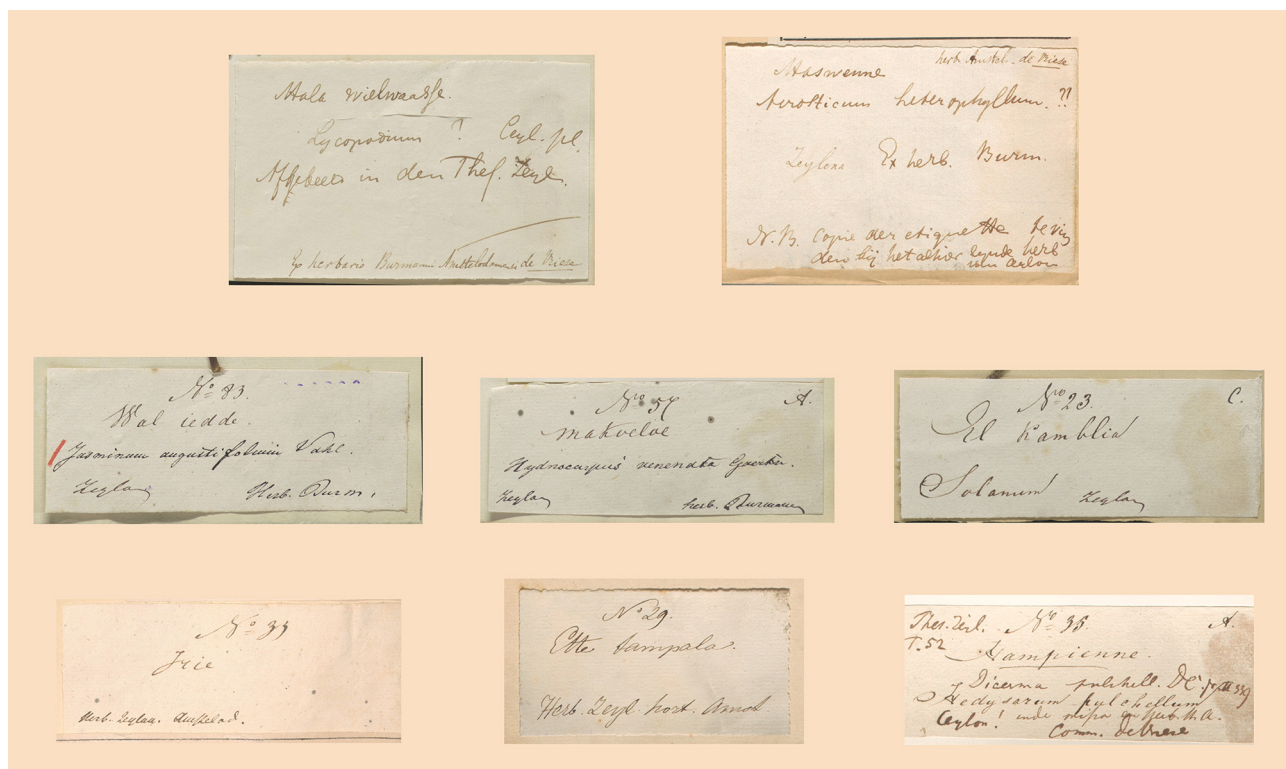 Mala wielwaasse.
Lycopodium ? Ceyl. pl.
Afgebeeld in den Thes. Zeyl.
Ex herbario Burmanni Amstelodamensi de Vriese
herb. Amstel. de Vriese
Maswenne
Acrosticum heterophyllum. ??
Zeylona Ex herb. Burm.
N.B. Copie der etiquette bevin
den bij het alhier zijnde herb
van
No 83.
Wal iedde.
Jasminum angustifolium Vahl.
Zeylan Herb. Burm.
Nro 57 A.
makoeloe
Hydnocarpus venenata Gaertn.
Zeylan herb. Burmann
Nro 23. C.
El Kamblia
Solanum Zeylan
No 33
Irie
Herb. Zeylan. Amstelod.
No 29.
Ette tampala.
Herb. Zeyl. hort. Amst
Thes. Zeil. No 35. A.
T. 52
Hampienne.
Dicerma pulchell. DC.
Hedysarum pulchellum
Ceylon!
Comm. de Vriese